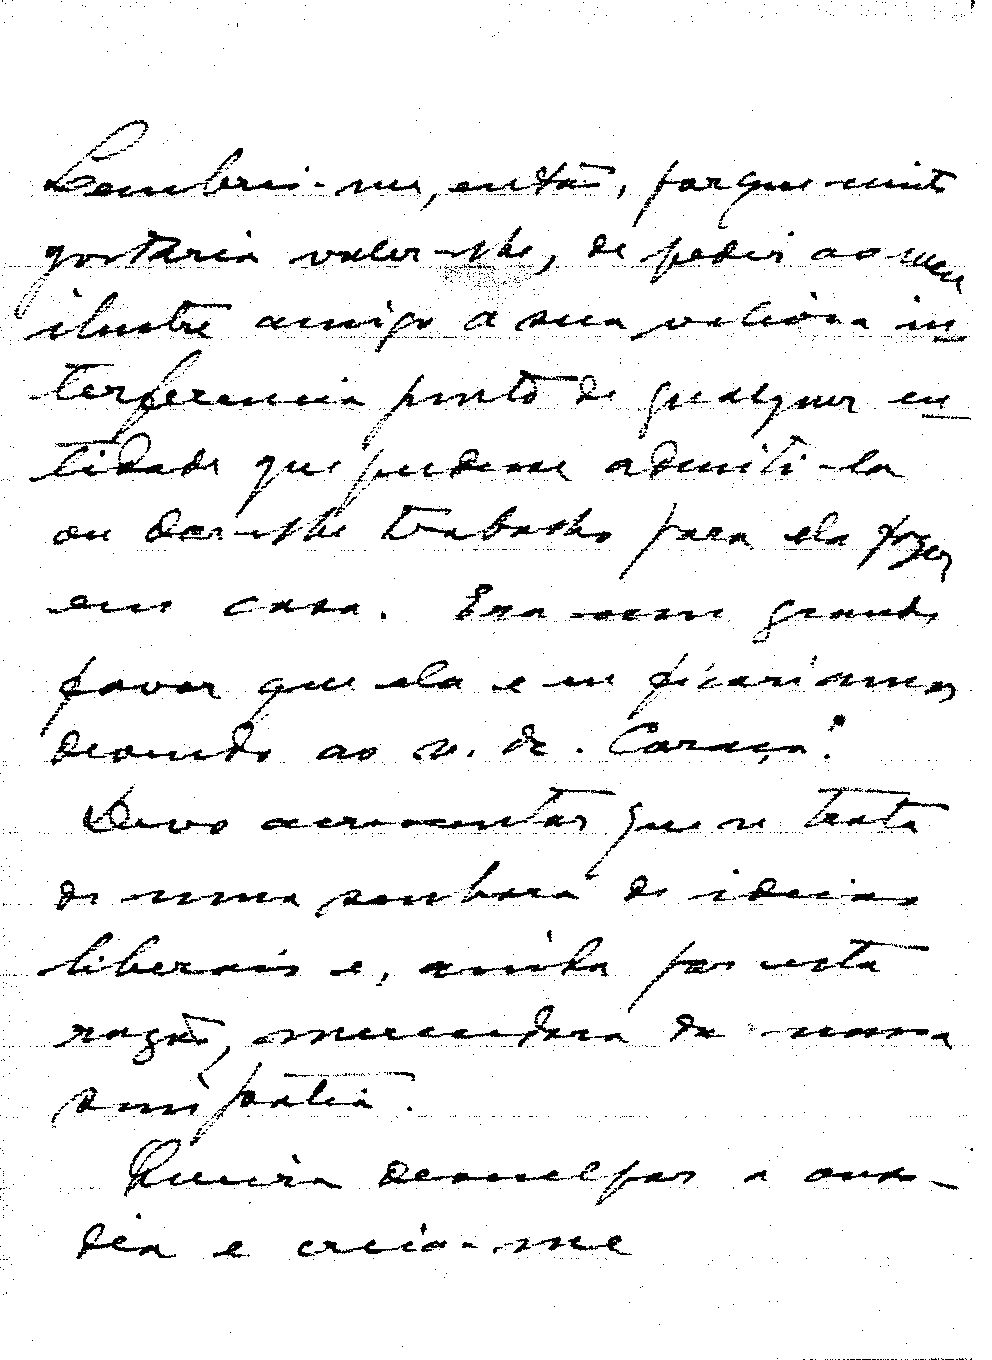 Lembrei-me, então, porque muito
gostaria valer-lhe, de pedir ao meu
ilustre amigo a sua valiosa in-
terferencia junto de qualquer en-
tidade que pudesse admiti-la
ou dar-lhe trabalho para ela fazer
em casa. Era um grande
favor que ela e eu ficariamos
devendo ao Caraça.
Devo acrescentar que se trata
de uma senhora de ideias
liberais e, ainda por esta
razão, merecedora da nossa
simpatia.
Queira desculpar a ousa-
dia e creia-me